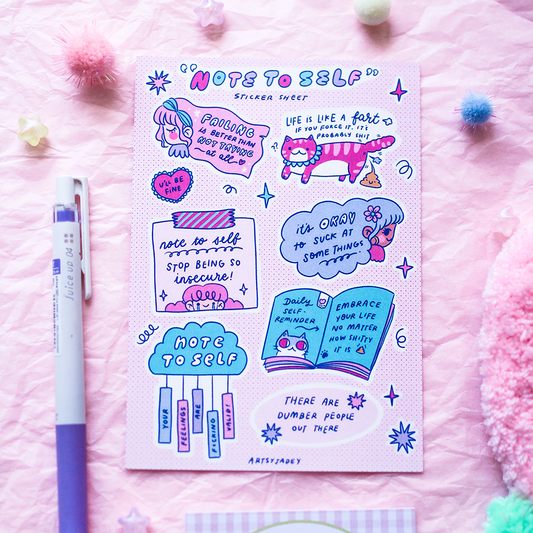 "NOTE TO SELF"
STICKER SHEET
FAILING
IS BETTER THAN
NOT TRYING
- at all -
LIFE IS LIKE A fart
IF YOU FORCE IT, IT'S
PROBABLY SHIT
U'LL BE
FINE
note to self
STOP BEING SO
insecure!
it's OKAY
TO SUCK AT
SOME THINGS
Daily
SELF-
REMINDER
EMBRACE
YOUR LIFE
NO MATTER
HOW SHITTY
IT IS
NOTE
TO SELF
YOUR
FEELINGS
ARE
F*CKING
VALID!
THERE ARE
DUMBER PEOPLE
OUT THERE
ARTSYJADEY
Juice up 04